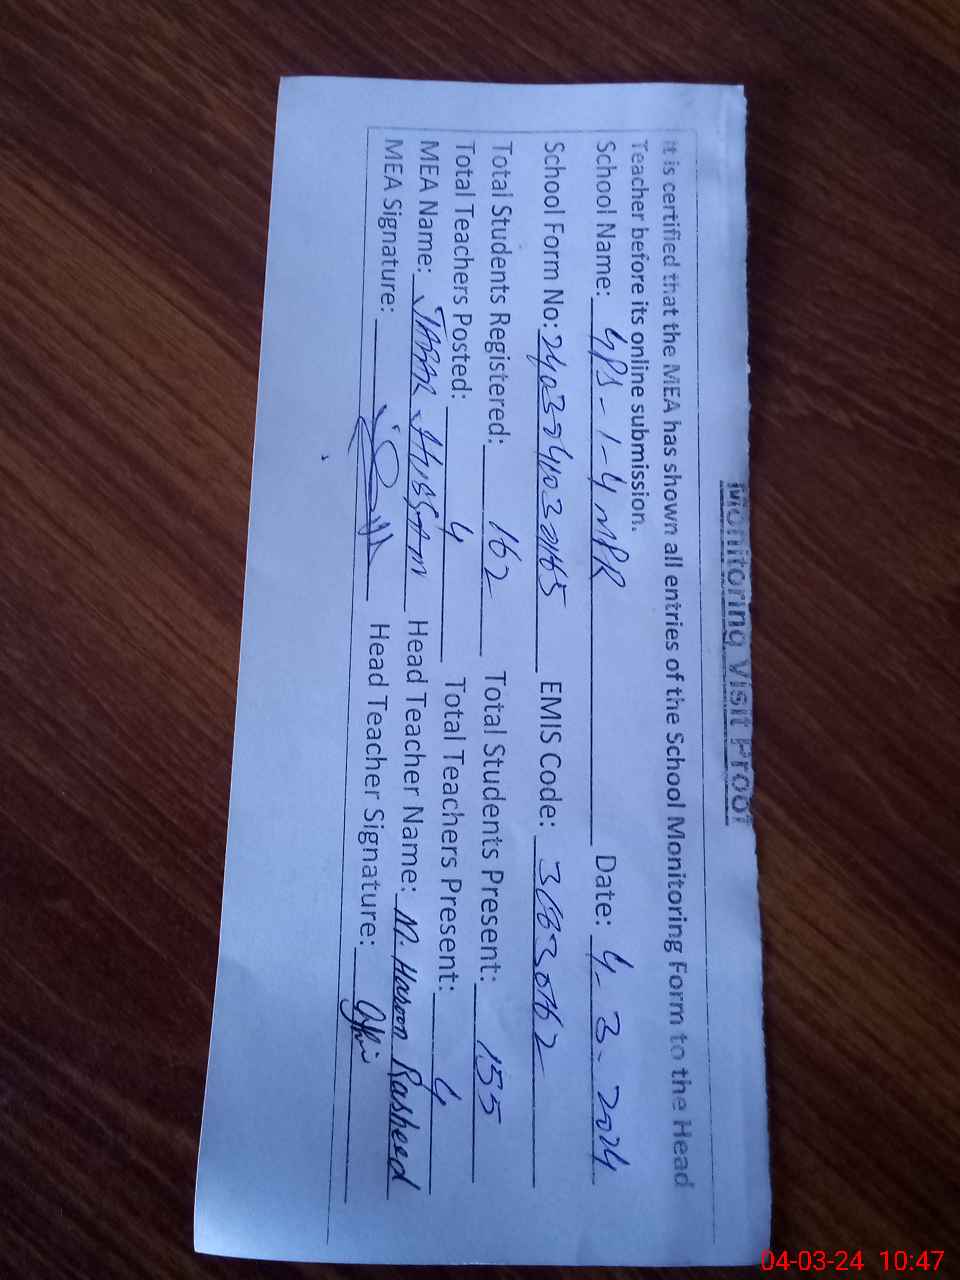 Monitoring Visit Proof
It is certified that the MEA has shown all entries of the School Monitoring Form to the Head
Teacher before its online submission.
School Name: GPS-1-4 MPR Date: 4-3-2024
School Form No: EMIS Code:
Total Students Registered: 162 Total Students Present: 155
Total Teachers Posted: 4 Total Teachers Present: 4
MEA Name: Hussain Head Teacher Name: M. Haroon Rasheed
MEA Signature: Head Teacher Signature:
04-03-24 10:47